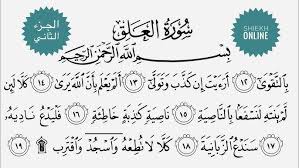 الجزء
الثاني
سُورَةُ الْعَلَقِ
SHIEKH
ONLINE
بِسْمِ ٱللَّهِ ٱلرَّحْمَٰنِ ٱلرَّحِيمِ
بِٱلتَّقْوَىٰٓ ١٢ أَرَءَيْتَ إِن كَذَّبَ وَتَوَلَّىٰٓ ١٣ أَلَمْ يَعْلَم بِأَنَّ ٱللَّهَ يَرَىٰ ١٤ كَلَّا لَئِن
لَّمْ يَنتَهِ لَنَسْفَعًۢا بِٱلنَّاصِيَةِ ١٥ نَاصِيَةٍ كَٰذِبَةٍ خَاطِئَةٍ ١٦ فَلْيَدْعُ نَادِيَهُۥ
١٧ سَنَدْعُ ٱلزَّبَانِيَةَ ١٨ كَلَّا لَا تُطِعْهُ وَٱسْجُدْ وَٱقْتَرِب ١٩